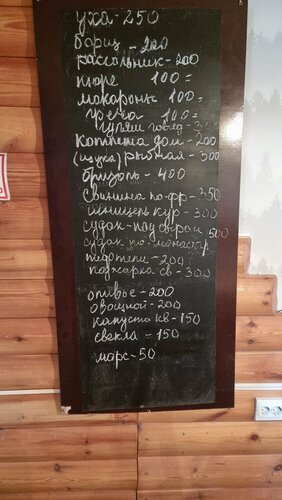 уха - 250
борщ - 200
рассольник - 200
пюре 100=
макароны 100=
греча 100=
гуляш говяд - 3
котлета дом - 200
(щука) рыбная - 300
бризоль - 400
свинина по-фр - 350
шницель кур - 300
судак - под сыром 500
судак по-монастыр
пельмени - 200
поджарка св - 300
оливье - 200
овощной - 200
капуста кв - 150
свекла - 150
морс - 50